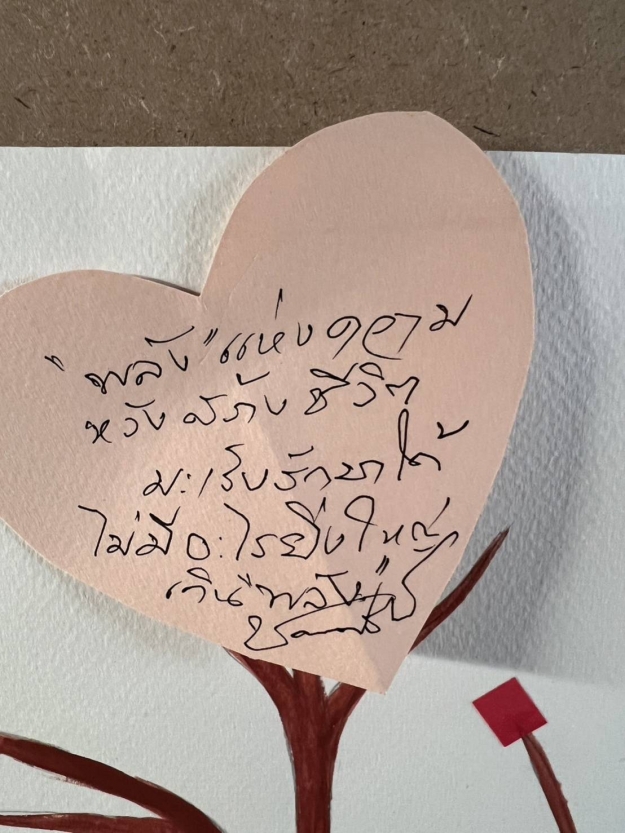 "พลัง" แห่งความ
หวัง สร้าง ชีวิต
มะเร็งรักษาได้
ไม่มีอะไรยิ่งใหญ่
เกิน "พลังนี้"